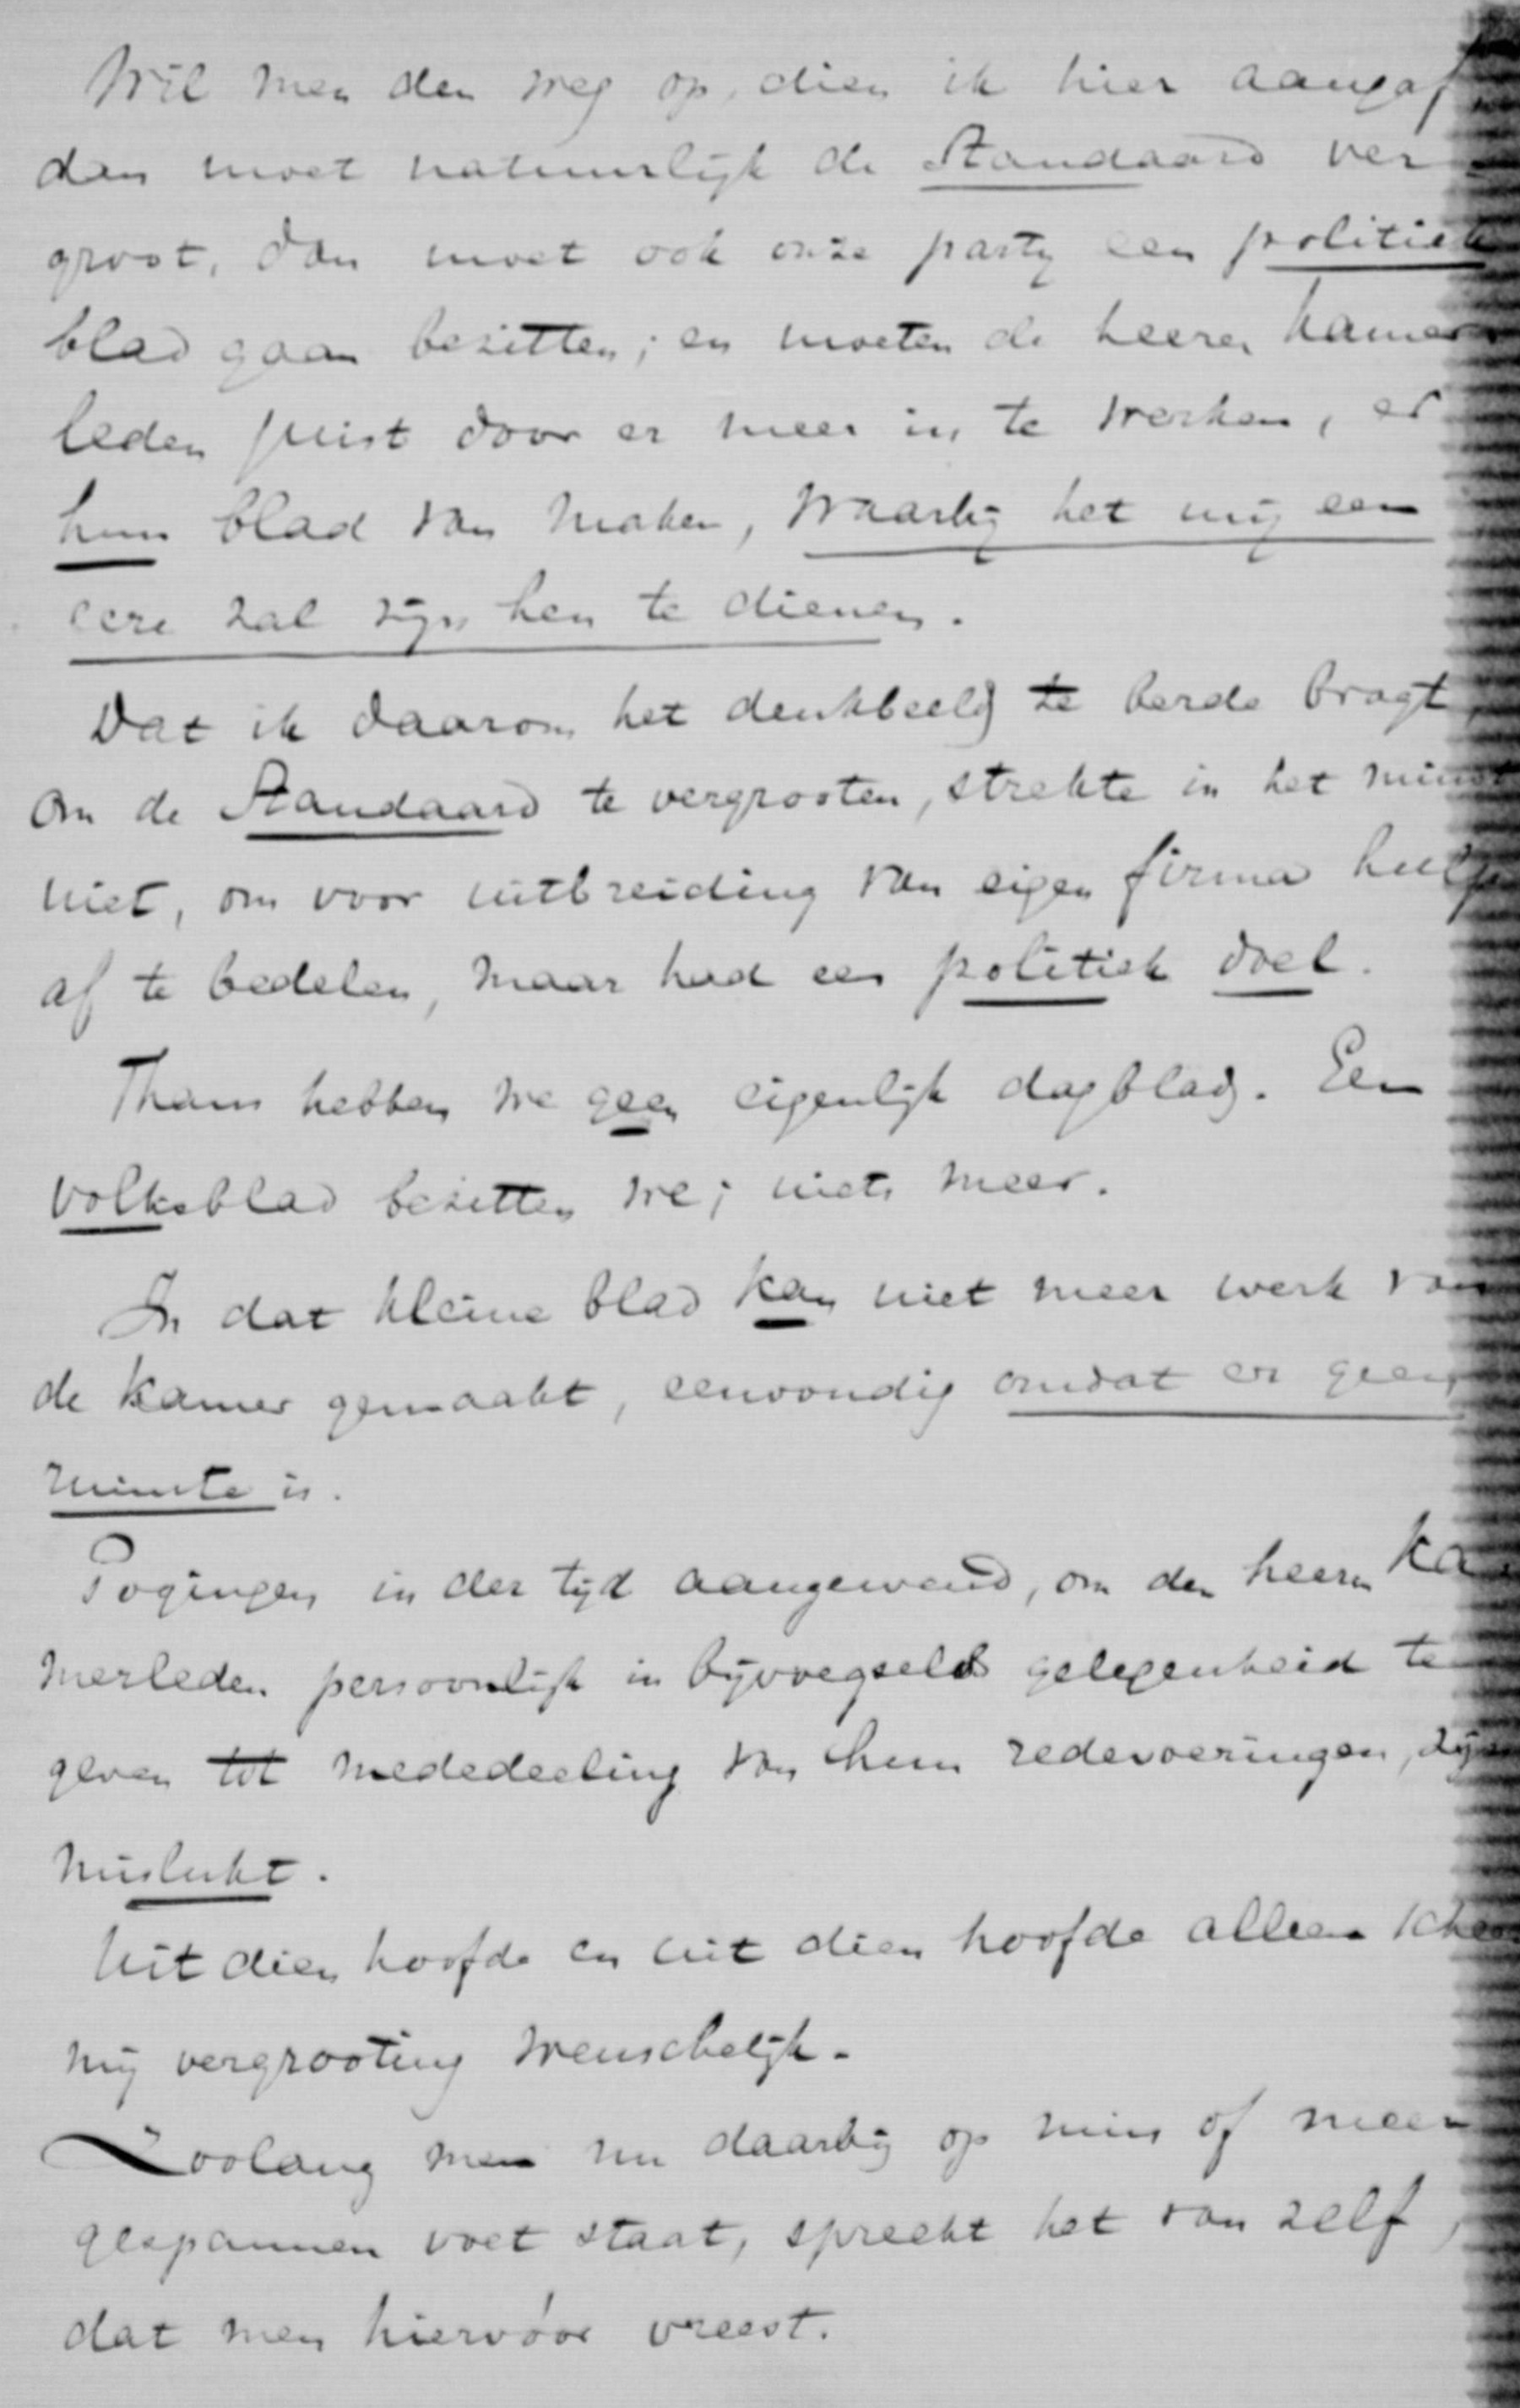 Wil men den weg op, dien ik hier aangaf
dan moet natuurlijk de Standaard ver
groot, dan moet ook onze party een politiek
blad gaan bezitten; en moeten de heeren kamer
leden juist door er meer in te werken, er
hun blad van maken, waarbij het mij een
eere zal zijn hen te dienen.
Dat ik daarom het denkbeeld te berde bragt,
om de Standaard te vergrooten, strekte in het minst
niet, om voor uitbreiding van eigen firma hulp
af te bedelen, maar had een politiek doel.
Thans hebben we geen eigenlijk dagblad. Een
volksblad bezitten we; niets meer.
In dat kleine blad kan niet meer werk van
de kamer gemaakt, eenvoudig omdat er geen
ruimte is.
Pogingen in der tijd aangewend, om den heeren Ka
merleden persoonlijk in bijvoegsels gelegenheid te
geven tot mededeeling van hun redevoeringen, zijn
mislukt.
Uit dien hoofde en uit dien hoofde alleen scheen
mij vergrooting wenschelijk.
Zoolang men nu daarbij op min of meer
gespannen voet staat, spreekt het van zelf,
dat men hiervóór vreest.